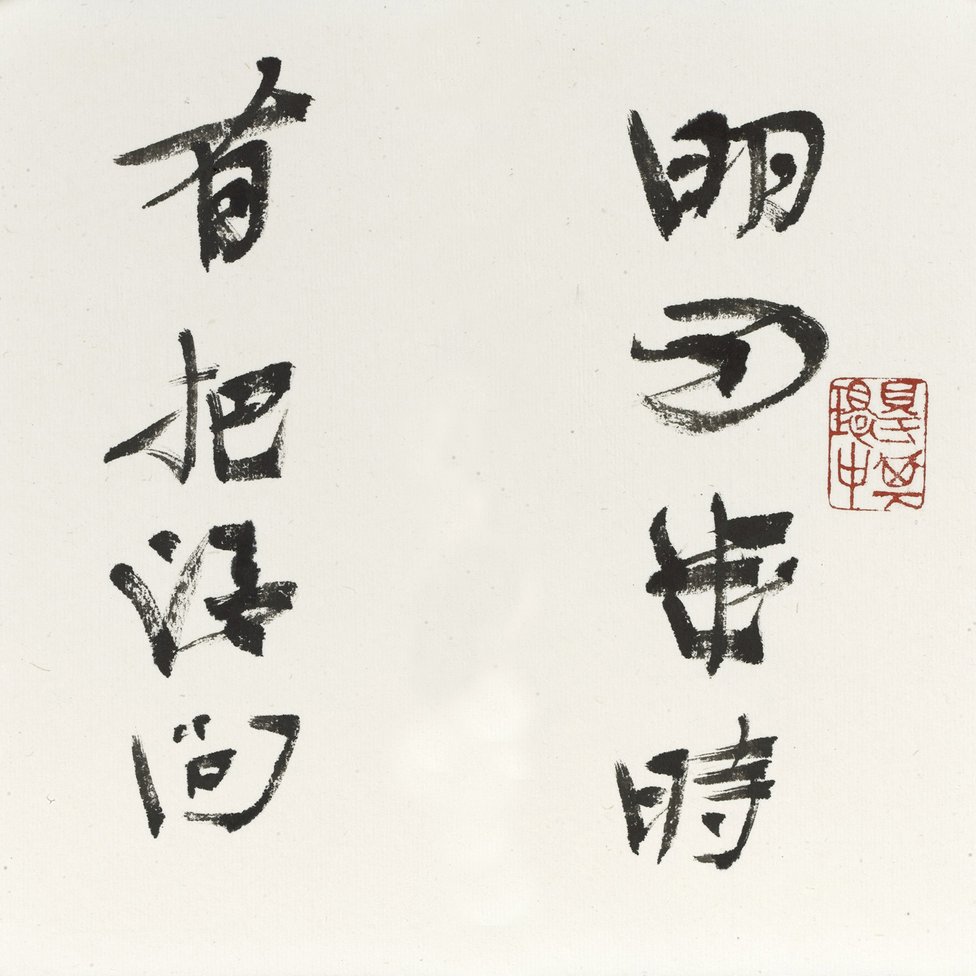 明月幾時
有把酒問